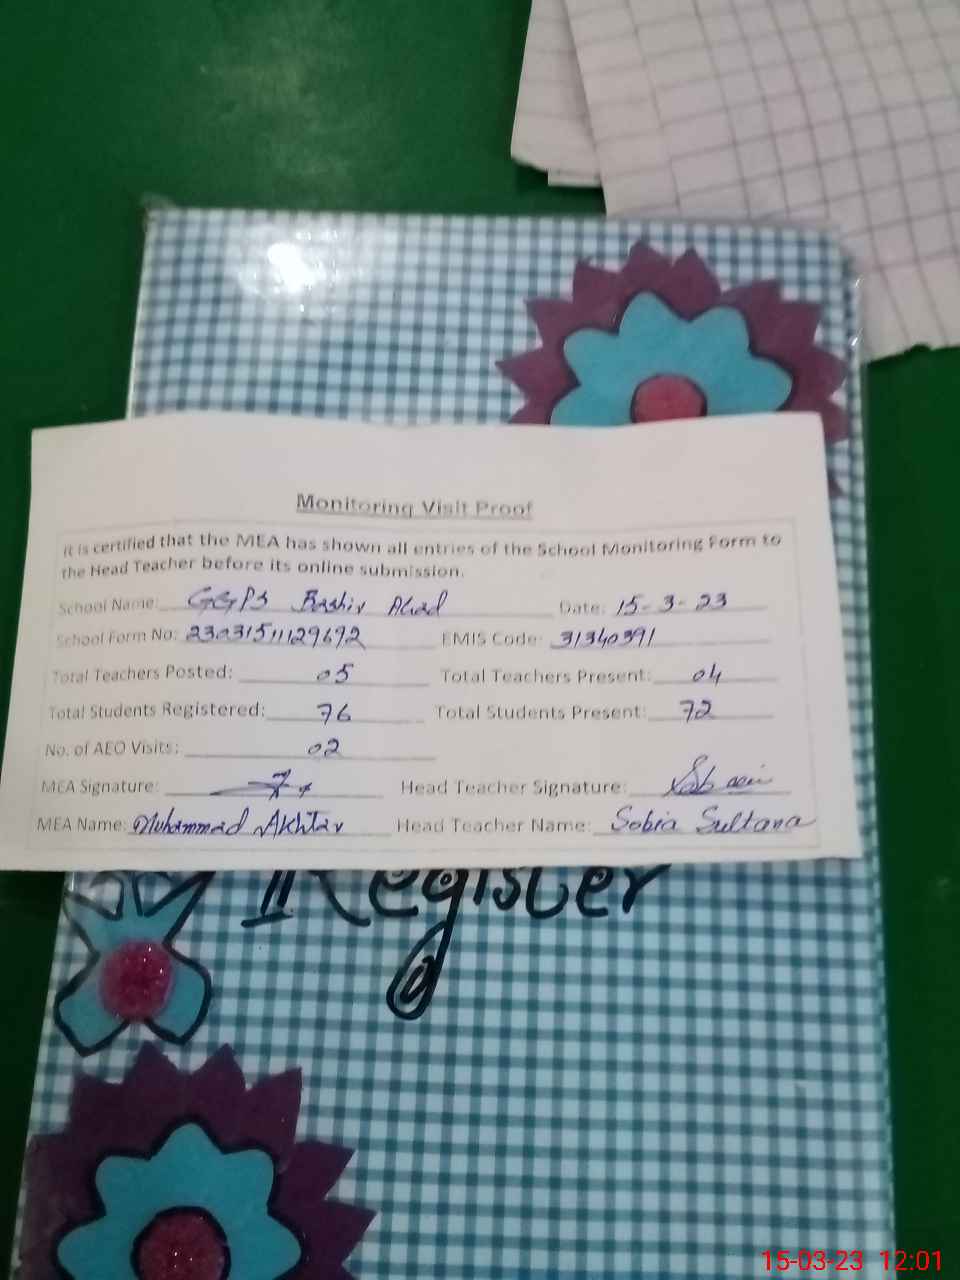 Monitoring Visit Proof
It is certified that the MEA has shown all entries of the School Monitoring Form to
the Head Teacher before its online submission.
School Name: GGPS Bashir Abad Date: 15-3-23
School Form No: 23031511129692 EMIS Code: 31340391
Total Teachers Posted: 05 Total Teachers Present: 04
Total Students Registered: 76 Total Students Present: 72
No. of AEO Visits: 02
MEA Signature: Head Teacher Signature:
MEA Name: Muhammad Akhtar Head Teacher Name: Sobia Sultana
Register
15-03-23 12:01